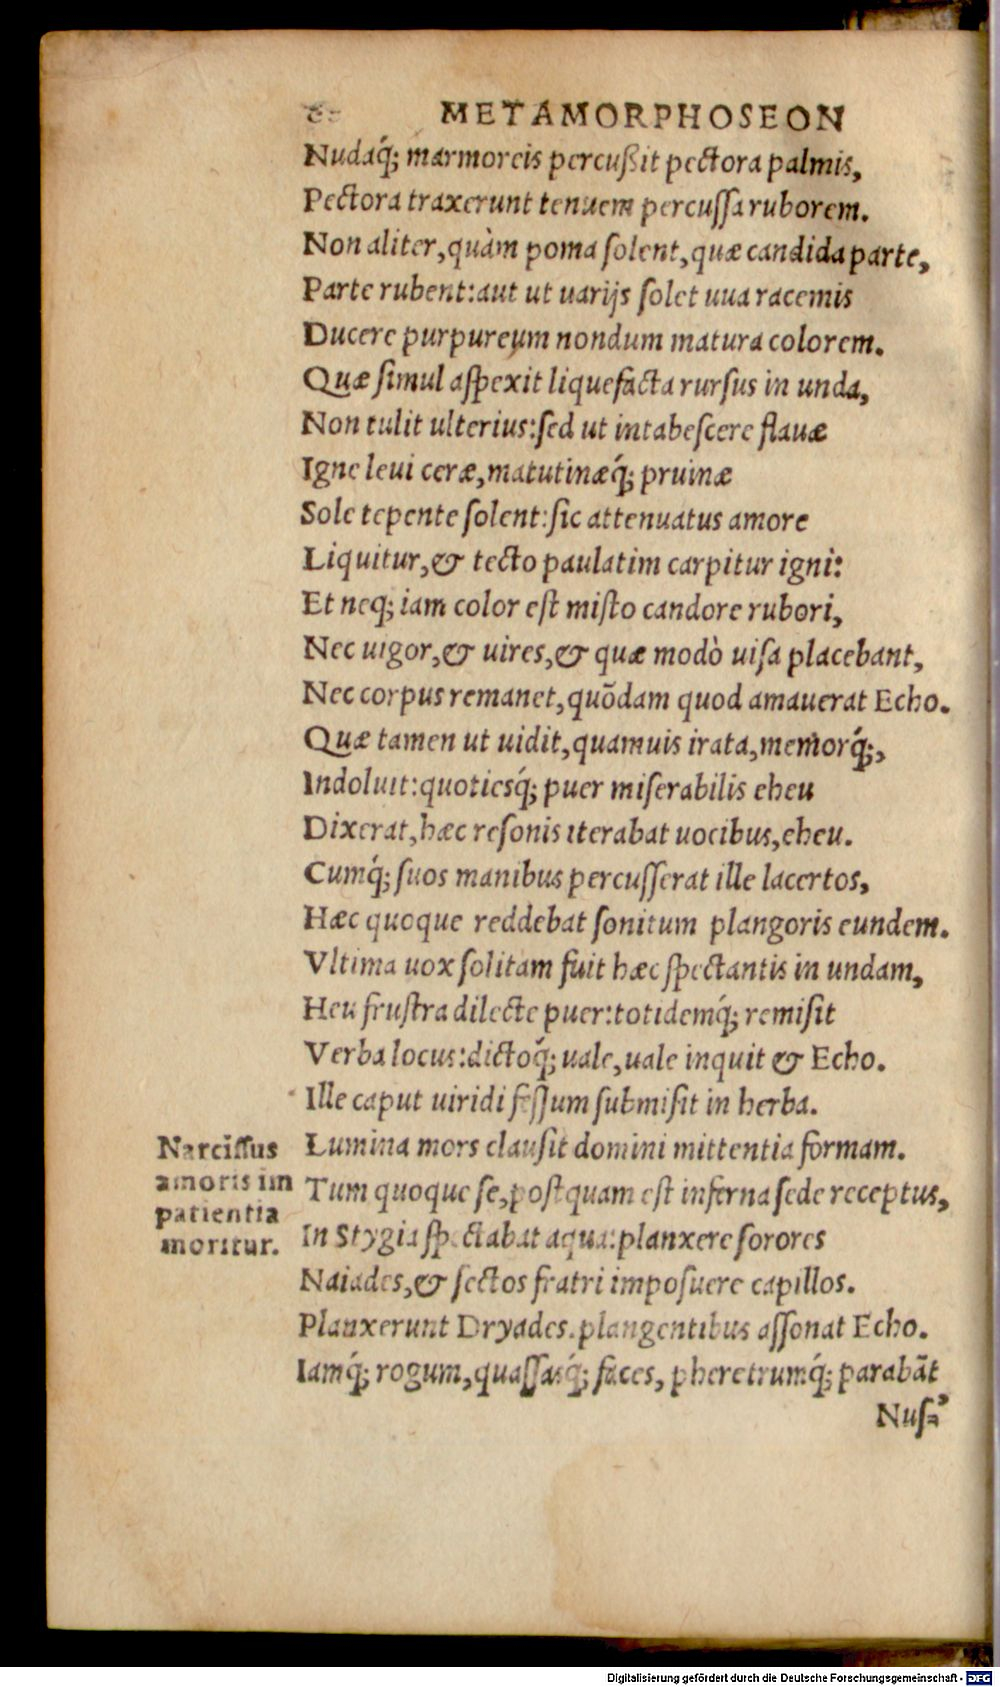 METAMORPHOSEON
Nudaq́; marmoreis percußit pectora palmis,
Pectora traxerunt tenuem percuſſa ruborem.
Non aliter, quàm poma ſolent, quæ candida parte,
Parte rubent: aut ut uarijs ſolet uua racemis
Ducere purpureum nondum matura colorem.
Quæ ſimul aſpexit liquefacta rurſus in unda,
Non tulit ulterius: ſed ut intabeſcere flauæ
Igne leui ceræ, matutinæq́; pruinæ
Sole tepente ſolent: ſic attenuatus amore
Liquitur, & tecto paulatim carpitur igni:
Et neq; iam color eſt miſto candore rubori,
Nec uigor, & uires, & quæ modò uiſa placebant,
Nec corpus remanet, quõdam quod amauerat Echo.
Quæ tamen ut uidit, quamuis irata, memorq́;,
Indoluit: quotiesq́; puer miſerabilis eheu
Dixerat, hæc reſonis iterabat uocibus, eheu.
Cumq́; ſuos manibus percuſſerat ille lacertos,
Hæc quoque reddebat ſonitum plangoris eundem.
Vltima uox ſolitam fuit hæc ſpectantis in undam,
Heu fruſtra dilecte puer: totidemq́; remiſit
Verba locus: dictoq́; uale, uale inquit & Echo.
Ille caput uiridi feſſum ſubmiſit in herba.
Lumina mors clauſit domini mittentia formam.
Tum quoque ſe, poſtquam eſt inferna ſede receptus,
In Stygia ſpectabat aqua: planxere ſorores
Naiades, & ſectos fratri impoſuere capillos.
Planxerunt Dryades. plangentibus aſſonat Echo.
Iamq́; rogum, quaſſasq́; faces, pheretrumq́; parabãt
Nuſ⸗
Narciſſus
amoris im
patientia
moritur.
Digitalisierung gefördert durch die Deutsche Forschungsgemeinschaft - DFG